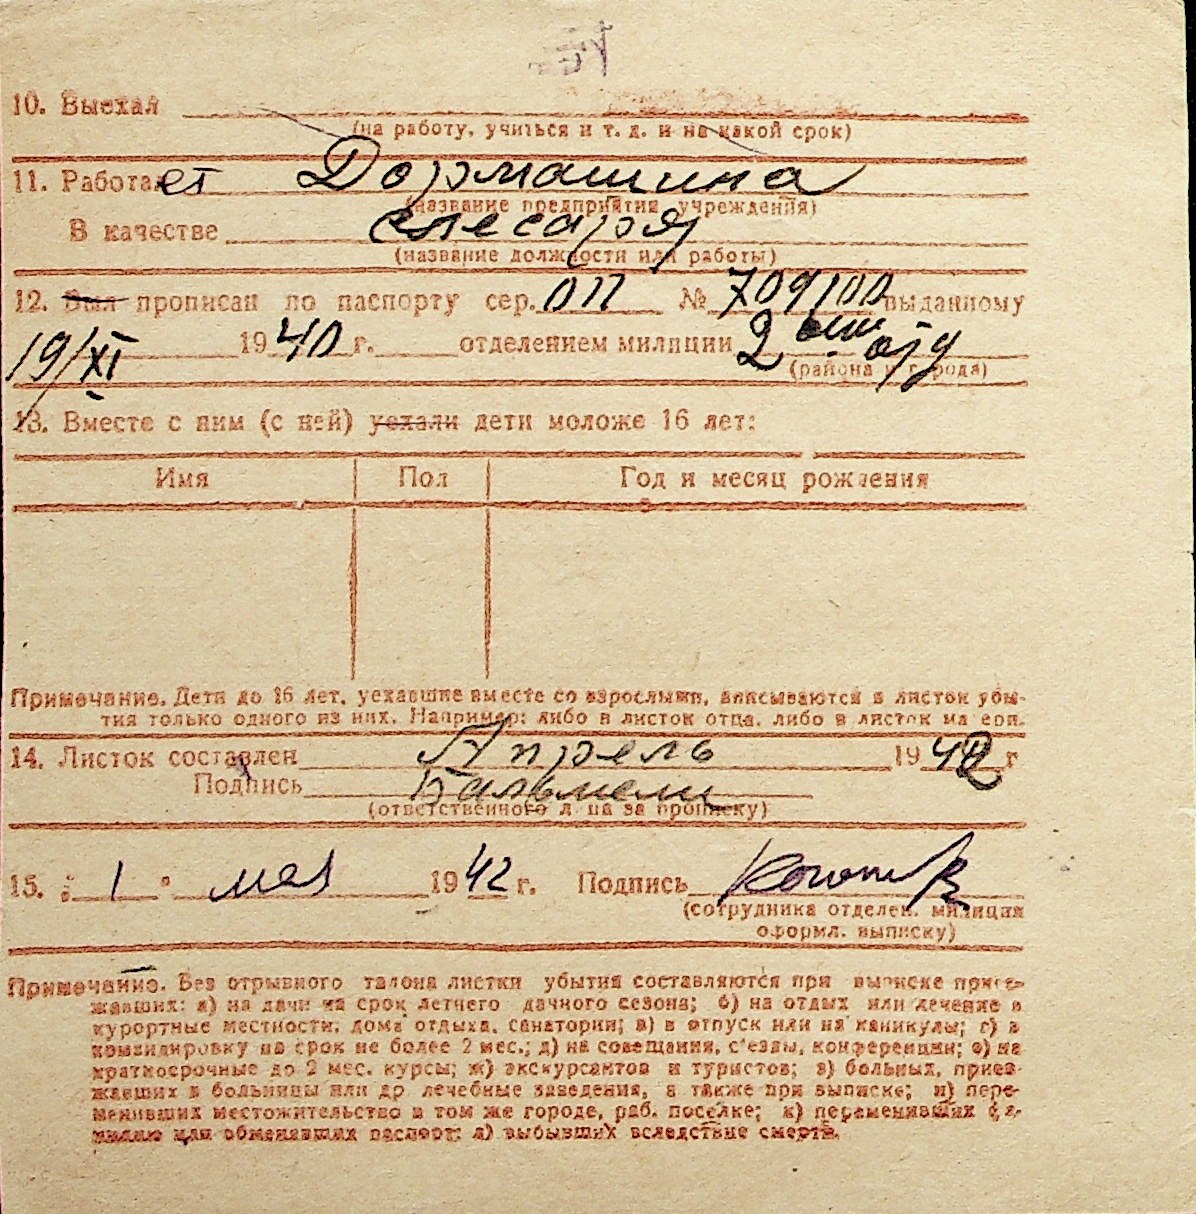 10. Выехал
(на работу, учиться и т. д. и на какой срок)
11. Работает Дормашина
(название предприятия учреждения)
В качестве слесаря
(название должности или работы)
12. Был прописан по паспорту сер. ОП № 709100 выданному
19/XI 1940 г. отделением милиции 2
(района и города)
13. Вместе с ним (с ней) уехали дети моложе 16 лет:
Имя Пол Год и месяц рождения
Примечание. Дети до 16 лет, уехавшие вместе со взрослыми, вписываются в листок убы-
тия только одного из них. Например: либо в листок отца, либо в листок матери.
14. Листок составлен Апрель 1942 г
Подпись
(ответственного лица за прописку)
15. „ 1 " мая 1942 г. Подпись
(сотрудника отделен. милиции
оформл. выписку)
Примечание. Без отрывного талона листки убытия составляются при выписке приез-
жавших: а) на дачи на срок летнего дачного сезона; б) на отдых или лечение в
курортные местности, дома отдыха, санатории; в) в отпуск или на каникулы; г) в
командировку на срок не более 2 мес.; д) на совещания, с'езды, конференции; е) на
краткосрочные до 2 мес. курсы; ж) экскурсантов и туристов; з) больных, приез-
жавших в больницы или др лечебные заведения, а также при выписке; и) пере-
менивших местожительство в том же городе, раб. поселке; к) переменивших фа-
милию или обменявших паспорт; л) выбывших вследствие смерти.